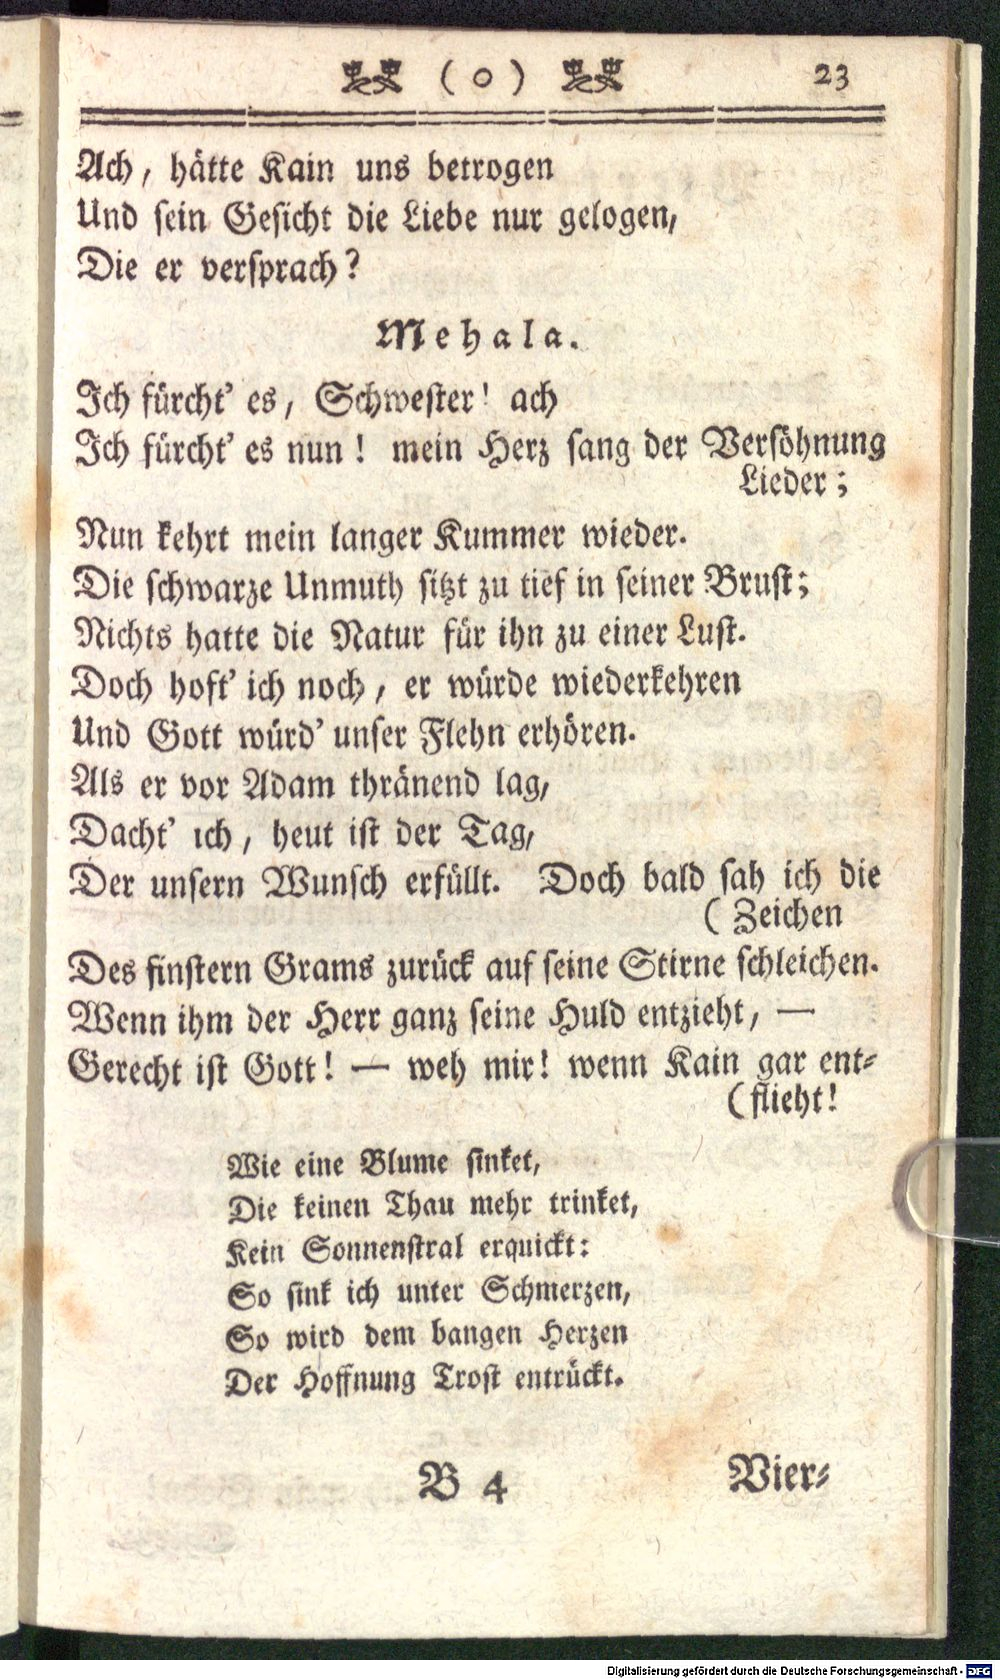 ( o ) 23
Ach, hätte Kain uns betrogen
Und sein Gesicht die Liebe nur gelogen,
Die er versprach?
Mehala.
Ich fürcht' es, Schwester! ach
Ich fürcht' es nun! mein Herz sang der Versöhnung
Lieder;
Nun kehrt mein langer Kummer wieder.
Die schwarze Unmuth sitzt zu tief in seiner Brust;
Nichts hatte die Natur für ihn zu einer Lust.
Doch hoft' ich noch, er würde wiederkehren
Und Gott würd' unser Flehn erhören.
Als er vor Adam thränend lag,
Dacht' ich, heut ist der Tag,
Der unsern Wunsch erfüllt. Doch bald sah ich die
( Zeichen
Des finstern Grams zurück auf seine Stirne schleichen.
Wenn ihm der Herr ganz seine Huld entzieht, —
Gerecht ist Gott! — weh mir! wenn Kain gar ent-
(flieht!
Wie eine Blume sinket,
Die keinen Thau mehr trinket,
Kein Sonnenstral erquickt:
So sink ich unter Schmerzen,
So wird dem bangen Herzen
Der Hoffnung Trost entrückt.
B 4 Vier-
Digitalisierung gefördert durch die Deutsche Forschungsgemeinschaft - DFG